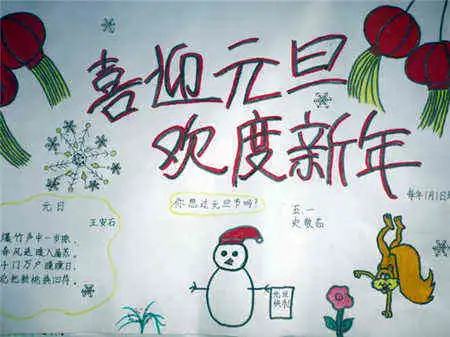 喜迎元旦
欢度新年
每年1月1日
元日
王安石
爆竹声中一岁除,
春风送暖入屠苏.
千门万户曈曈日,
总把新桃换旧符.
你想过元旦节吗?
五.一
元旦
快乐